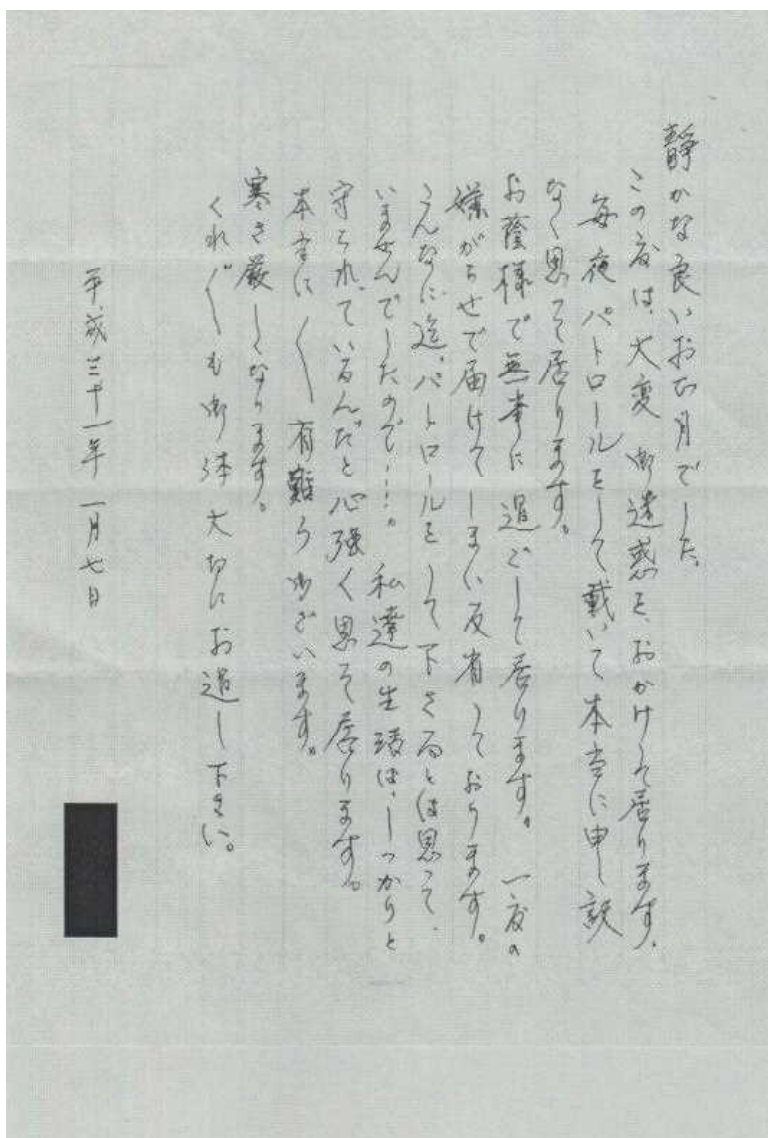 静かな良いお正月でした。
この度は、大変御迷惑を、おかけして居ります。
毎夜パトロールをして戴いて本当に申し訳
なく思って居ります。
お蔭様で無事に過ごして居ります。一度の
嫌がらせで届けてしまい反省しております。
こんなに迄、パトロールをして下さるとは思って、
いませんでしたので…。私達の生活は、しっかりと
守られているんだと心強く思って居ります。
本当に〱有難う御ざいます。
寒さ厳しくなります。
くれ〲も御体大切にお過し下さい。
平成三十一年一月七日